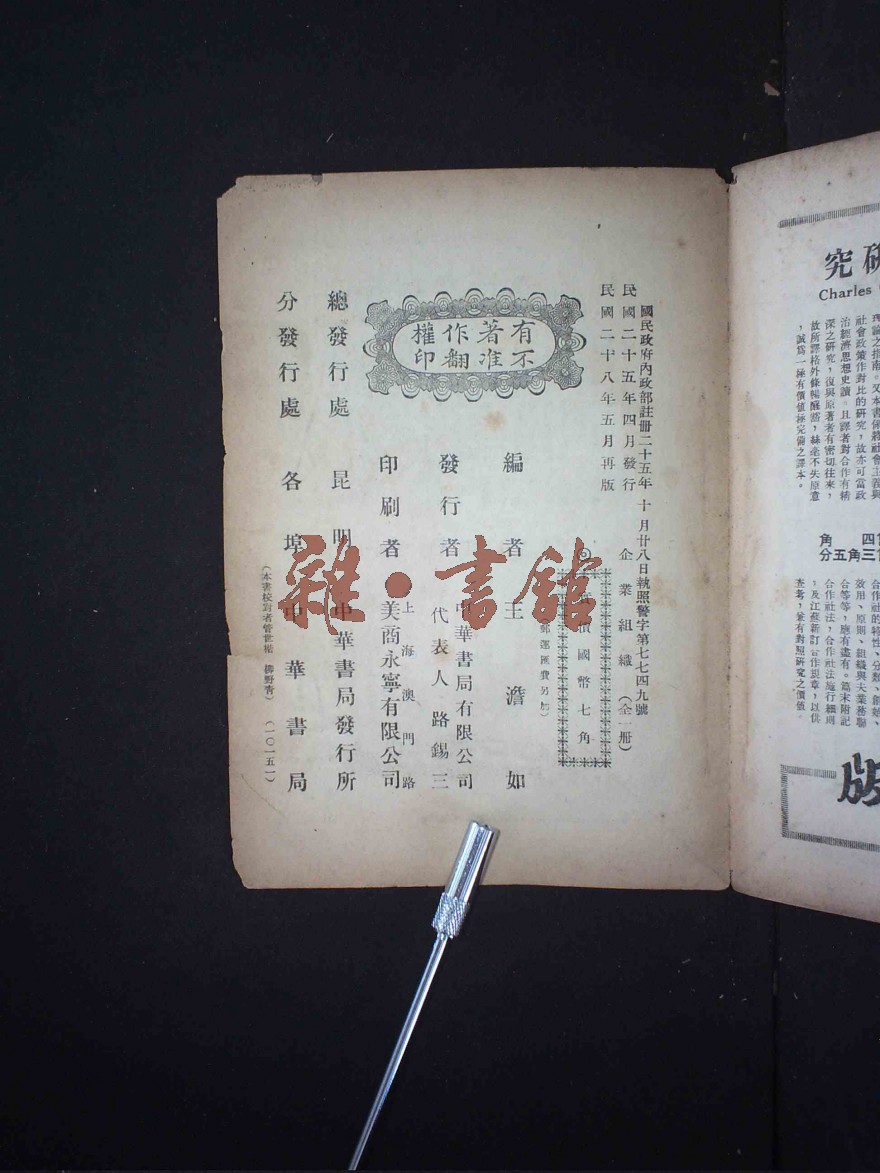 國民政府內政部註冊二十五年十月廿八日執照警字第七七四九號
民國二十五年四月發行
民國二十八年五月再版
企業組織（全一冊）
價國幣七角
郵運匯費另加）
有著作權
不准翻印
編者 王澹如
發行者 中華書局有限公司
代表人路錫三
印刷者 上海澳門路
美商永寧有限公司
總發行處 昆明 中華書局發行所
分發行處 各埠中華書局
（本書校對者管世楷 柳野青）（一〇一五一）
雜·書館
研究
Charles
理論之指南。又本書係將社會主義與
社會政策作對比的研究，故亦可當政
治經濟思想史讀。且譯者對合作有精
深之研究，復與原著者有密切往來，
故所譯格外條暢醒豁，絲毫不失原意
，誠爲一極有價值極完備之譯本。
四角
三角五分
合作社的特性、分類、
效用、原則、組織與夫業務聯
合等等，應有盡有。篇末附記
合作社法，合作社法施行細則
，及江蘇新訂合作規章，以供
查考，兼有對照研究之價值。
版